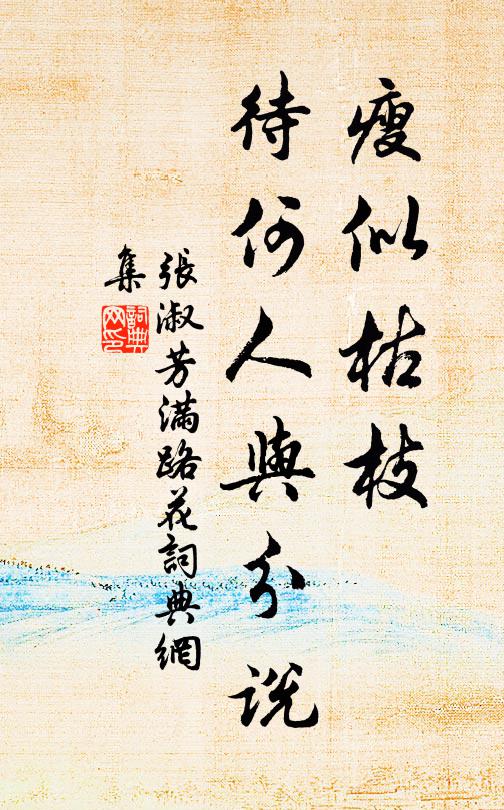 瘦似枯枝
待何人與分說
張淑芳滿路花詞典網
集
詞典
网